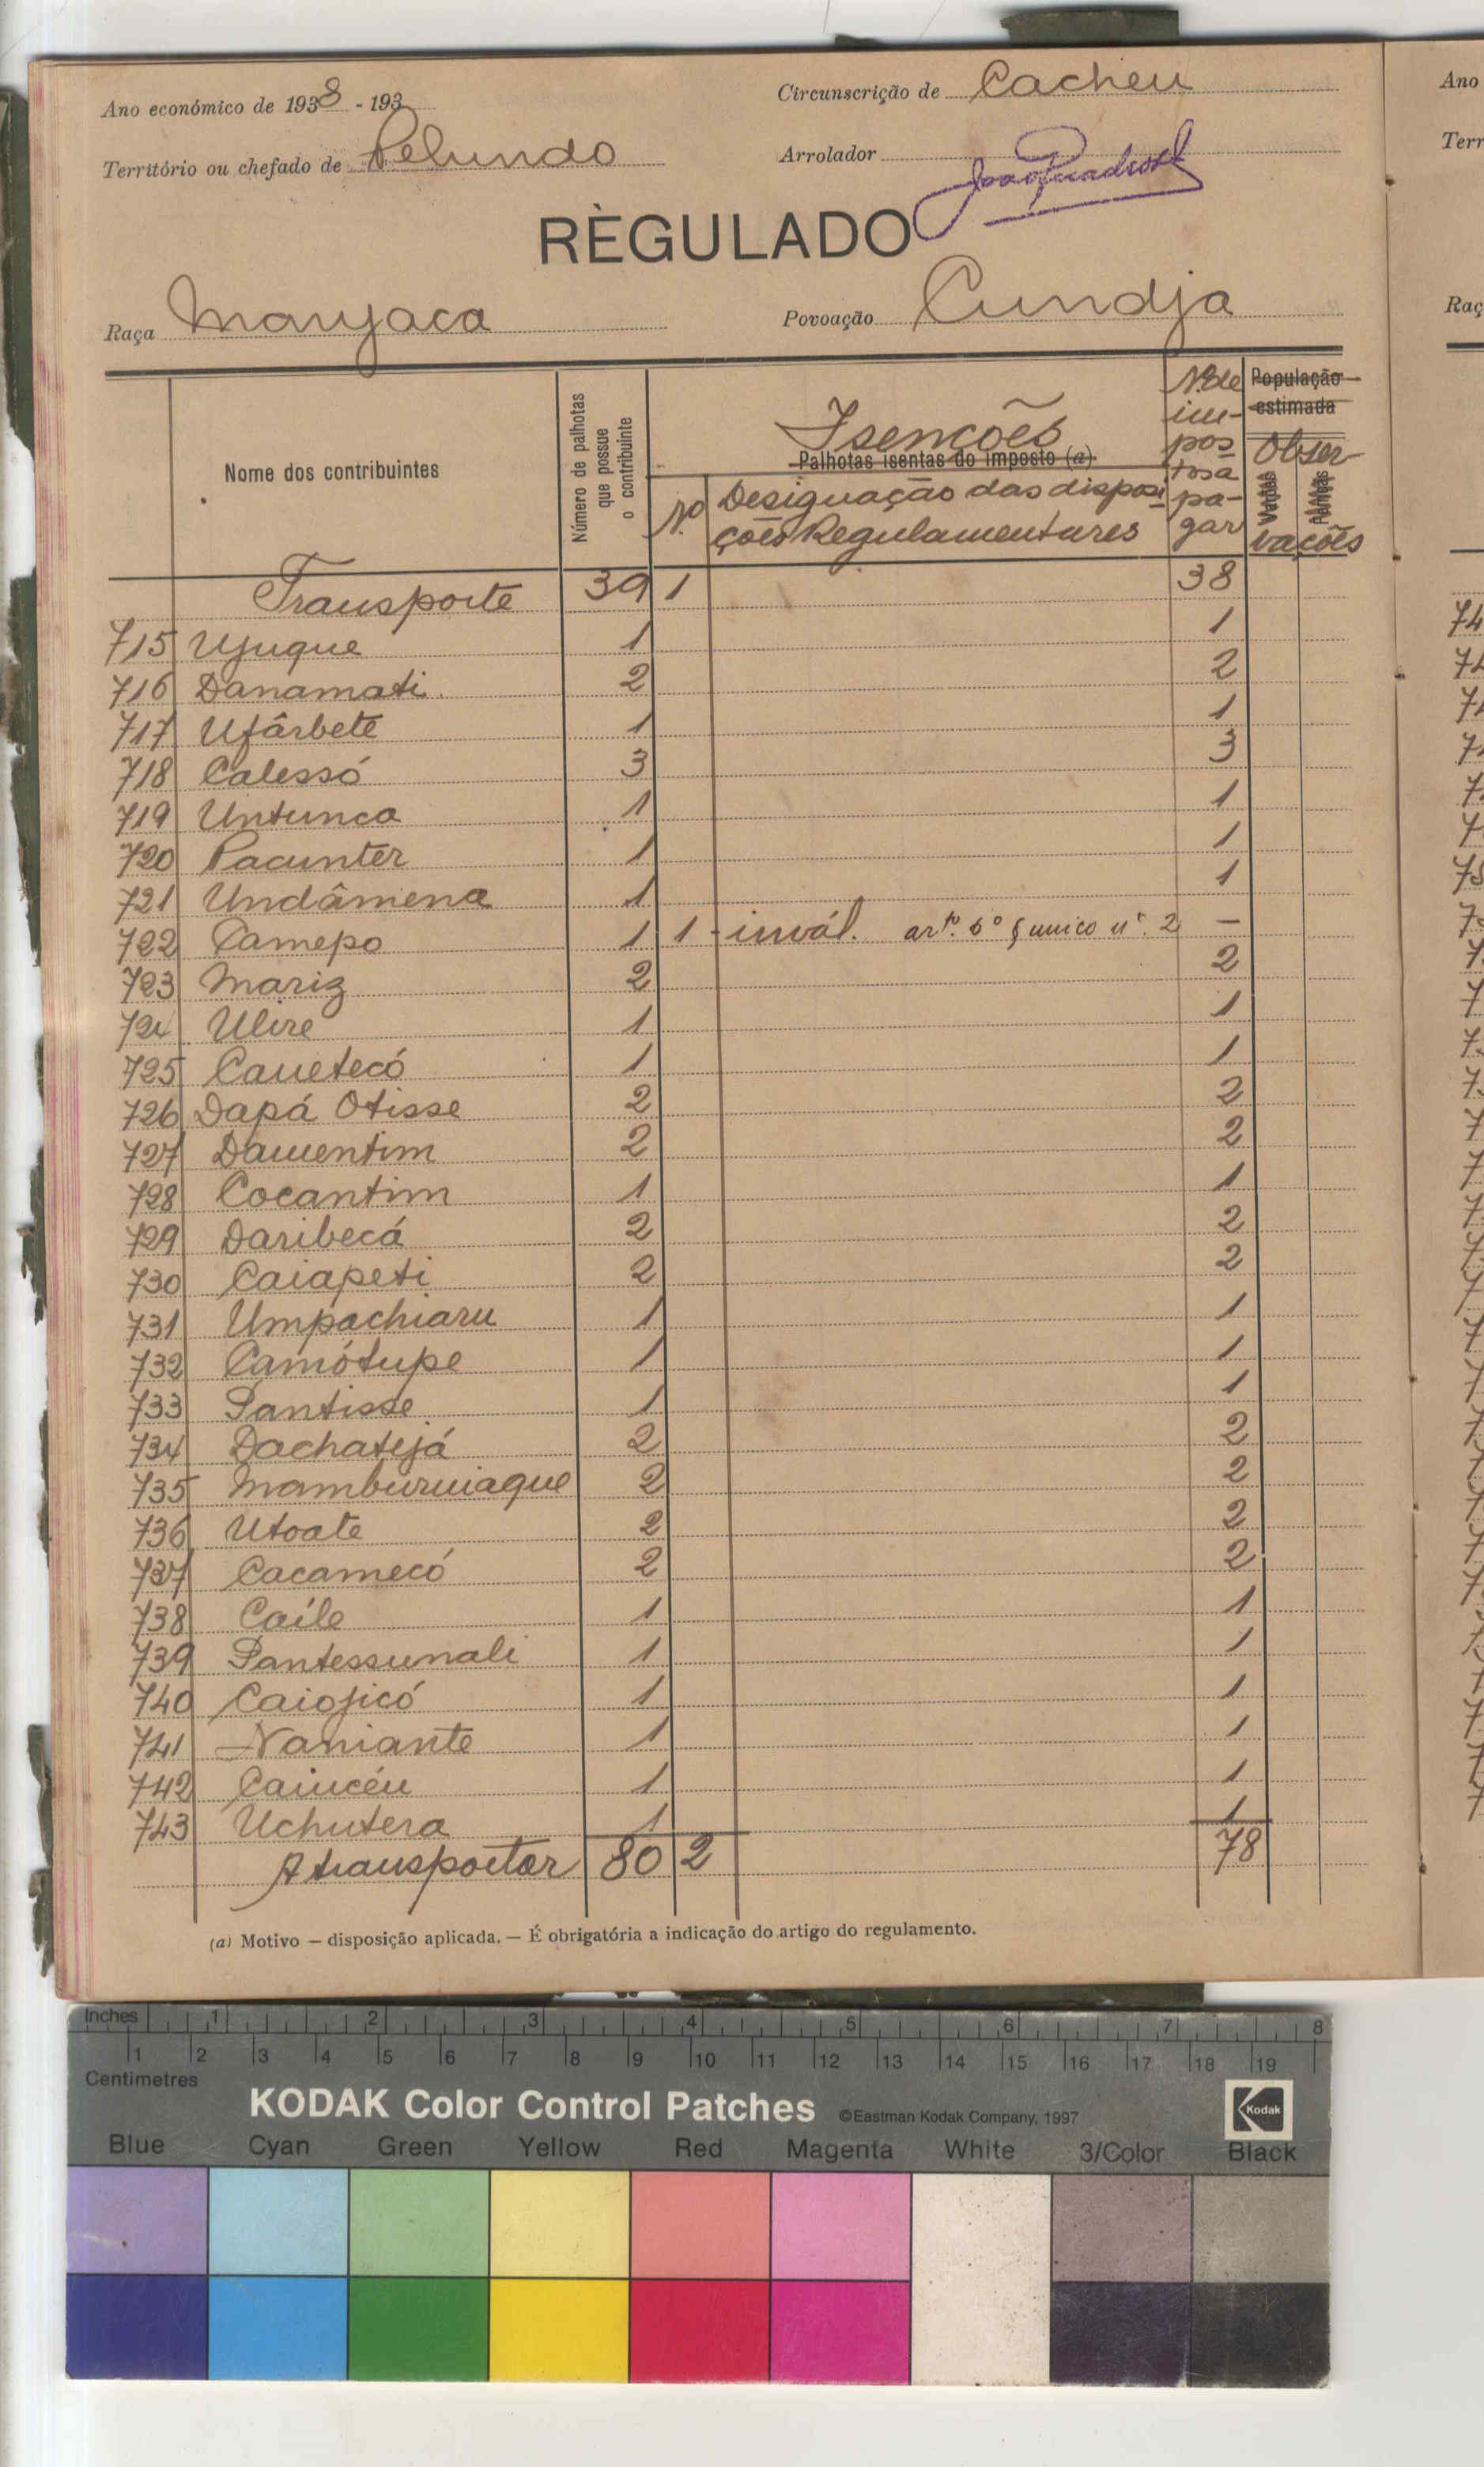 Ano económico de 1938 - 193
Circunscrição de Cacheu
Território ou chefado de Pelundo
Arrolador
RÈGULADO
Raça Manjaca
Povoação Cundja
Nome dos contribuintes
Número de palhotas que possue o contribuinte
Isenções
Palhotas isentas do imposto (a)
Nº
Designação das disposições Regulamentares
Nº de impostos a pagar
População estimada
Observações
Transporte 39 1 38
715 Ujuque 1 1
716 Danamati 2 2
717 Ufârbete 1 1
718 Calessó 3 3
719 Untunca 1 1
720 Pacunter 1 1
721 Undâmena 1 1
722 Camepo 1 1 - invál. artº. 6º § unico nº. 2 -
723 Mariz 2 2
724 Ulire 1 1
725 Cauetecó 1 1
726 Dapá Otisse 2 2
727 Dauentim 2 2
728 Cocantim 1 1
729 Daribecá 2 2
730 Caiapeti 2 2
731 Umpachiaru 1 1
732 Camótupe 1 1
733 Pantisse 1 1
734 Dachatejá 2 2
735 Mamburuiaque 2 2
736 Utoate 2 2
737 Cacamecó 2 2
738 Caíle 1 1
739 Pantessunali 1 1
740 Caiojicó 1 1
741 Naniante 1 1
742 Caiucéu 1 1
743 Uchutera 1 1
A transportar 80 2 78
(a) Motivo — disposição aplicada. — É obrigatória a indicação do artigo do regulamento.
Ano
Terr
Raç
Inches 1 2 3 4 5 6 7 8
1 2 3 4 5 6 7 8 9 10 11 12 13 14 15 16 17 18 19
Centimetres
KODAK Color Control Patches ©Eastman Kodak Company, 1997 Kodak
Blue Cyan Green Yellow Red Magenta White 3/Color Black